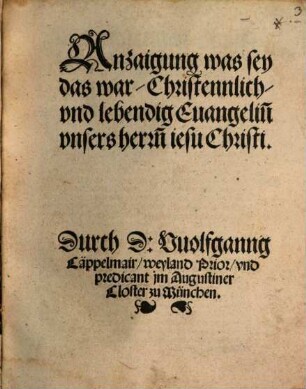 3
Anzaigung was sey
das war-Christennlich-
vnd lebendig Euangeliū
vnsers herrn̄ iesu Christi.
Durch D: Vuolfganng
Cäppelmair/weyland Prior/vnd
predicant jm Augustiner
Closter zu München.